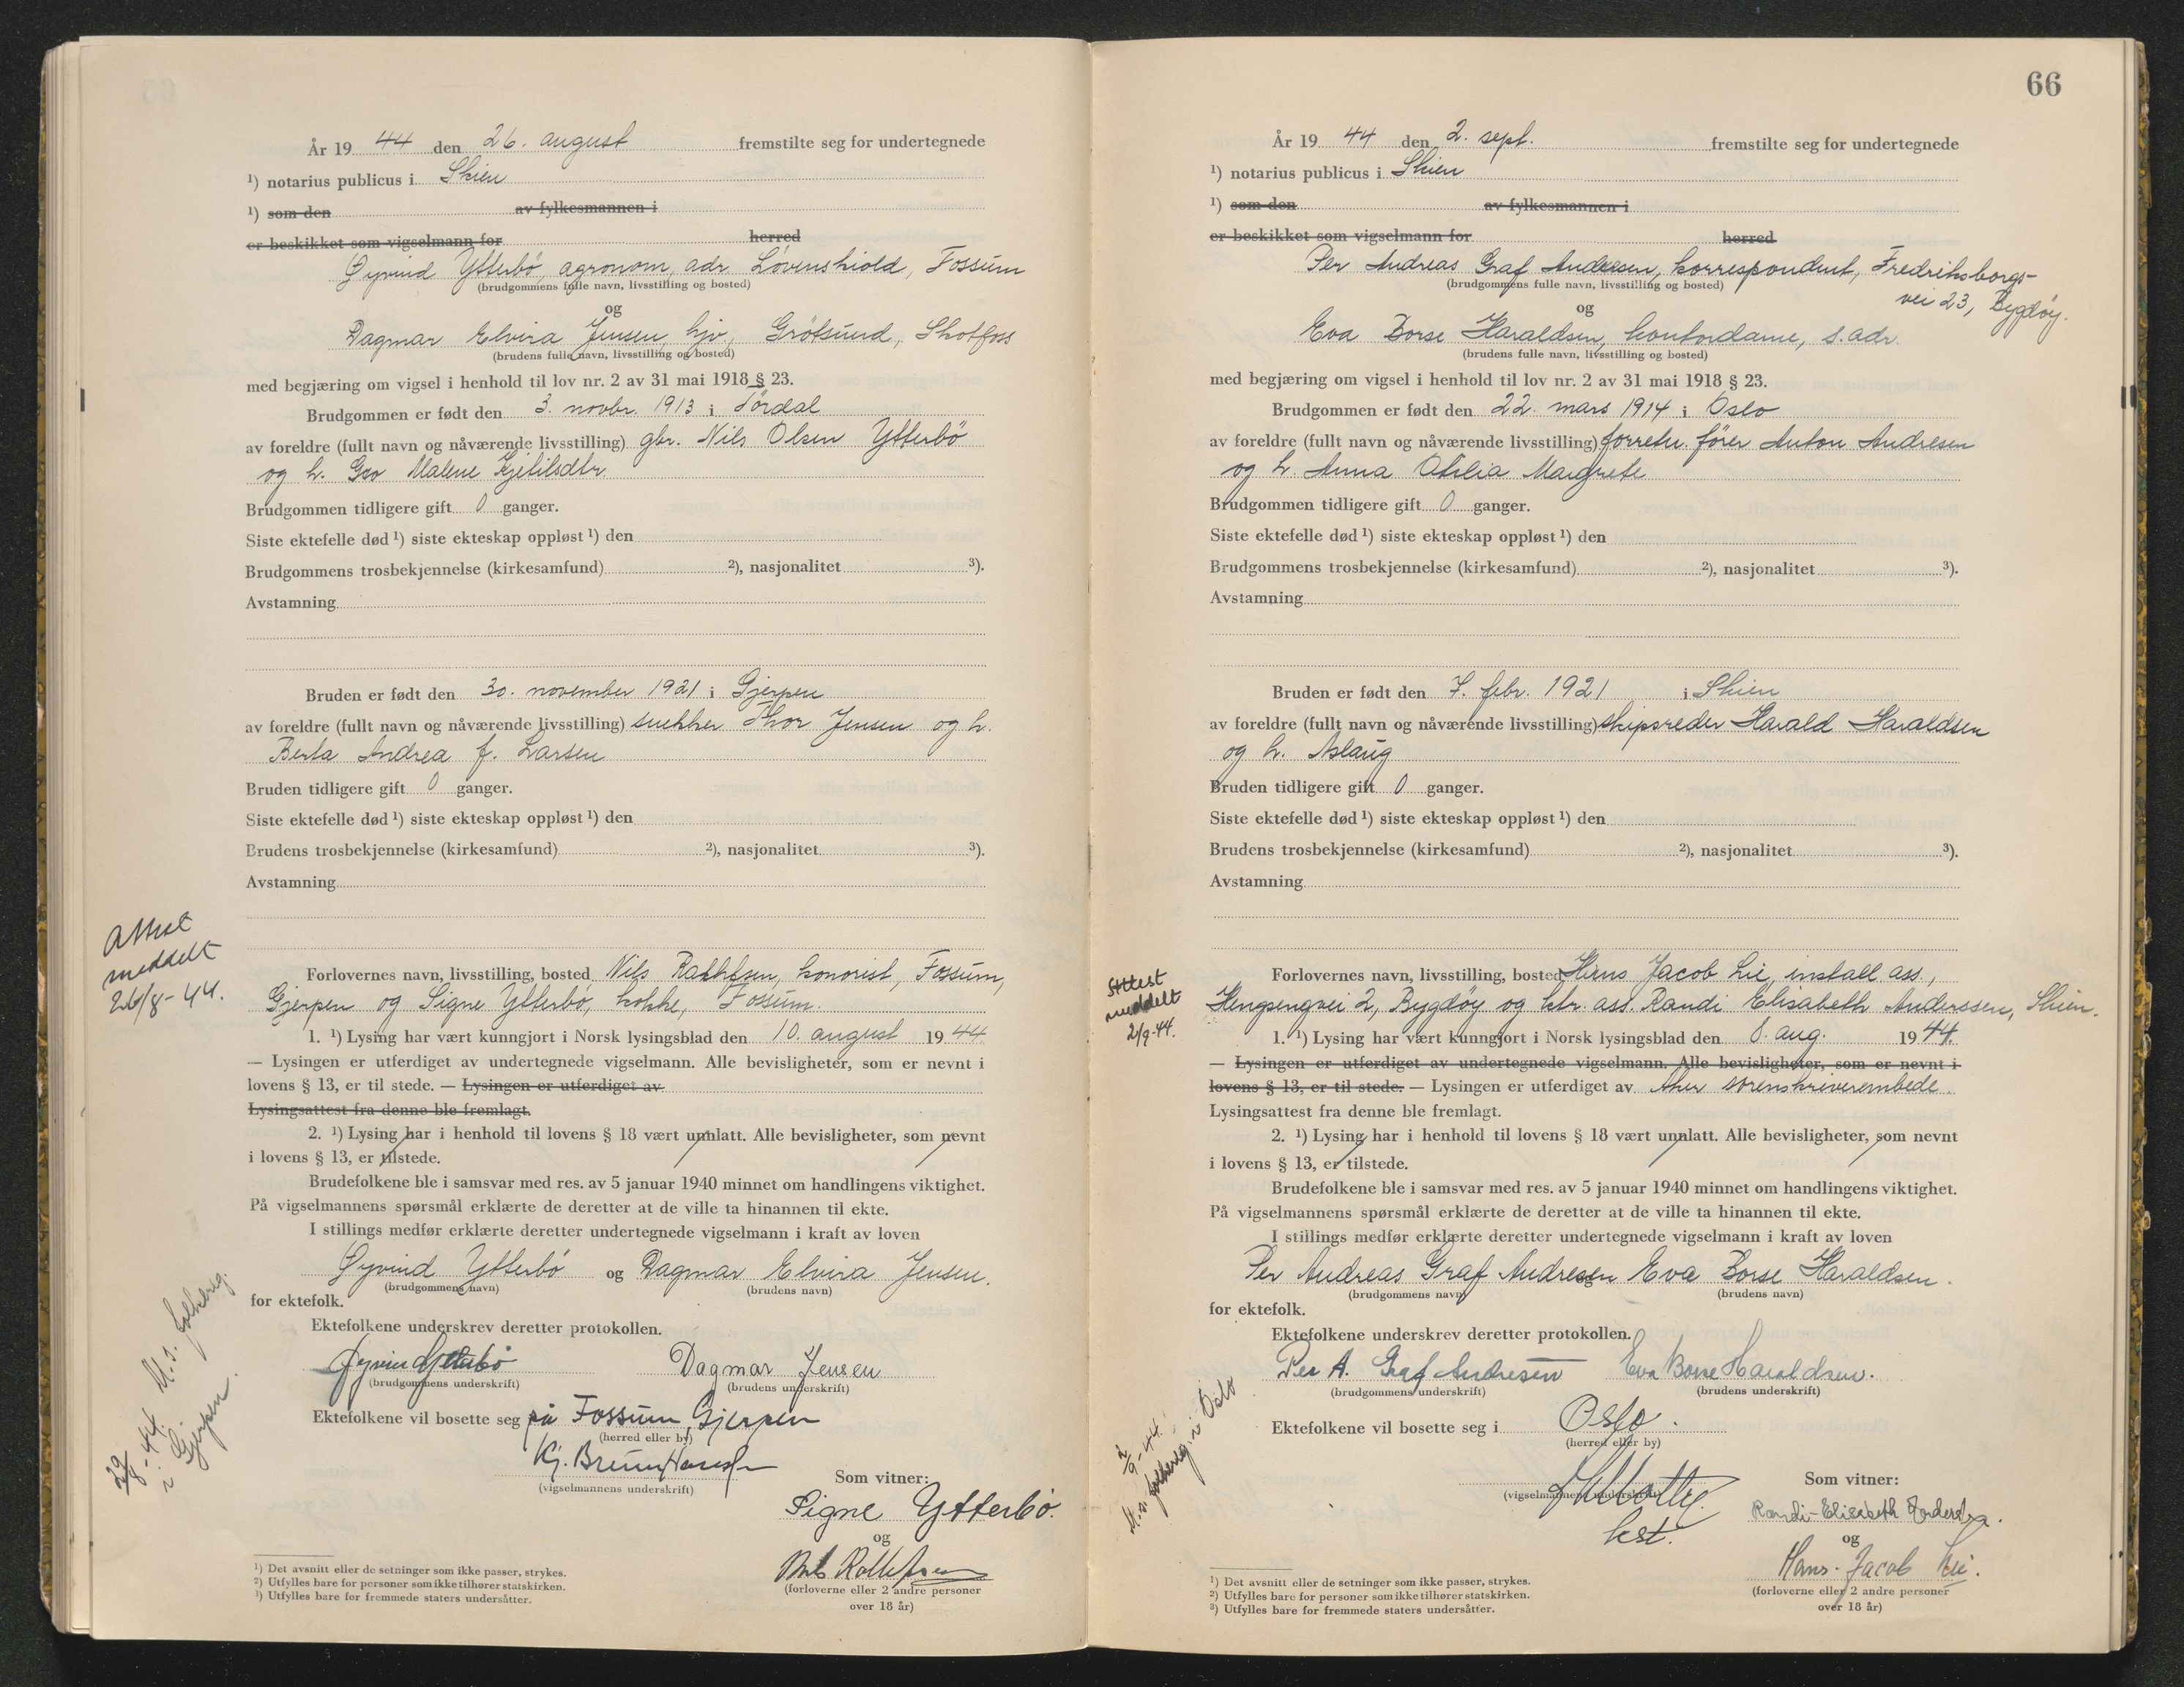 År 19 44 den 26. august fremstilte seg for undertegnede
¹) notarius publicus i Skien
¹) som den av fylkesmannen i
er beskikket som vigselmann for herred
Øyvind Ytterbö, agronom, adr. Lövenskiold, Fossum
(brudgommens fulle navn, livsstilling og bosted)
og
Dagmar Elvira Jensen, hjv., Grötsund, Skotfoss
(brudens fulle navn, livsstilling og bosted)
med begjæring om vigsel i henhold til lov nr. 2 av 31 mai 1918 § 23.
Brudgommen er født den 3. novbr. 1913 i Tördal
av foreldre (fullt navn og nåværende livsstilling) gbr. Nils Olsen Ytterbö
og h. Gro Malene Kjetilsdtr.
Brudgommen tidligere gift 0 ganger.
Siste ektefelle død ¹) siste ekteskap oppløst ¹) den
Brudgommens trosbekjennelse (kirkesamfund) ²), nasjonalitet ³).
Avstamning
Bruden er født den 30. november 1921 i Gjerpen
av foreldre (fullt navn og nåværende livsstilling) snekker Thor Jensen og h.
Berta Andrea f. Larsen
Bruden tidligere gift 0 ganger.
Siste ektefelle død ¹) siste ekteskap oppløst ¹) den
Brudens trosbekjennelse (kirkesamfund) ²), nasjonalitet ³).
Avstamning
Attest
meddelt
26/8-44.
Forlovernes navn, livsstilling, bosted Nils, Fossum,
Gjerpen og Signe Ytterbö, kokke, Fossum.
1. ¹) Lysing har vært kunngjort i Norsk lysingsblad den 10. august 19 44
— Lysingen er utferdiget av undertegnede vigselmann. Alle bevisligheter, som er nevnt i
lovens § 13, er til stede. — Lysingen er utferdiget av
Lysingsattest fra denne ble fremlagt.
2. ¹) Lysing har i henhold til lovens § 18 vært unnlatt. Alle bevisligheter, som nevnt
i lovens § 13, er tilstede.
Brudefolkene ble i samsvar med res. av 5 januar 1940 minnet om handlingens viktighet.
På vigselmannens spørsmål erklærte de deretter at de ville ta hinannen til ekte.
I stillings medfør erklærte deretter undertegnede vigselmann i kraft av loven
Øyvind Ytterbö og Dagmar Elvira Jensen.
(brudgommens navn) (brudens navn)
for ektefolk.
Ektefolkene underskrev deretter protokollen.
Øyvind Ytterbö Dagmar Jensen
(brudgommens underskrift) (brudens underskrift)
Ektefolkene vil bosette seg på Fossum, Gjerpen
(herred eller by)
Kj. Bruun Hanssen
(vigselmannens underskrift)
Som vitner:
Signe Ytterbö.
og
(forloverne eller 2 andre personer
over 18 år)
29/8-44. M. s. folkereg.
i Gjerpen.
¹) Det avsnitt eller de setninger som ikke passer, strykes.
²) Utfylles bare for personer som ikke tilhører statskirken.
³) Utfylles bare for fremmede staters undersåtter.
66
År 19 44 den 2. sept. fremstilte seg for undertegnede
¹) notarius publicus i Skien
¹) som den av fylkesmannen i
er beskikket som vigselmann for herred
Per Andreas Graf Andresen, korrespondent, Fredriksborgs-
vei 23, Bygdøy.
(brudgommens fulle navn, livsstilling og bosted)
og
Eva Borse Haraldsen, kontordame, s. adr.
(brudens fulle navn, livsstilling og bosted)
med begjæring om vigsel i henhold til lov nr. 2 av 31 mai 1918 § 23.
Brudgommen er født den 22. mars 1914 i Oslo
av foreldre (fullt navn og nåværende livsstilling) forretn. förer Anton Andresen
og h. Anna Otilia Margrete
Brudgommen tidligere gift 0 ganger.
Siste ektefelle død ¹) siste ekteskap oppløst ¹) den
Brudgommens trosbekjennelse (kirkesamfund) ²), nasjonalitet ³).
Avstamning
Bruden er født den 7. febr. 1921 i Skien
av foreldre (fullt navn og nåværende livsstilling) skipsreder Harald Haraldsen
og h. Aslaug
Bruden tidligere gift 0 ganger.
Siste ektefelle død ¹) siste ekteskap oppløst ¹) den
Brudens trosbekjennelse (kirkesamfund) ²), nasjonalitet ³).
Avstamning
Attest
meddelt
2/9-44.
Forlovernes navn, livsstilling, bosted Hans Jacob Lie, install. ass.,
Hengsengvei 2, Bygdøy og ktr. ass. Randi Elisabeth Anderssen, Skien.
1. ¹) Lysing har vært kunngjort i Norsk lysingsblad den 8. aug. 19 44.
— Lysingen er utferdiget av undertegnede vigselmann. Alle bevisligheter, som er nevnt i
lovens § 13, er til stede. — Lysingen er utferdiget av Aker sorenskriverembede.
Lysingsattest fra denne ble fremlagt.
2. ¹) Lysing har i henhold til lovens § 18 vært unnlatt. Alle bevisligheter, som nevnt
i lovens § 13, er tilstede.
Brudefolkene ble i samsvar med res. av 5 januar 1940 minnet om handlingens viktighet.
På vigselmannens spørsmål erklærte de deretter at de ville ta hinannen til ekte.
I stillings medfør erklærte deretter undertegnede vigselmann i kraft av loven
Per Andreas Graf Andresen Eva Borse Haraldsen.
(brudgommens navn) (brudens navn)
for ektefolk.
Ektefolkene underskrev deretter protokollen.
Per A. Graf Andresen Eva Borse Haraldsen.
(brudgommens underskrift) (brudens underskrift)
Ektefolkene vil bosette seg i Oslo.
(herred eller by)
(vigselmannens underskrift)
kst.
Som vitner:
Randi-Elisabeth Anderssen.
og
Hans-Jacob Lie.
(forloverne eller 2 andre personer
over 18 år)
2/9-44.
M. s. folkereg. i Oslo
¹) Det avsnitt eller de setninger som ikke passer, strykes.
²) Utfylles bare for personer som ikke tilhører statskirken.
³) Utfylles bare for fremmede staters undersåtter.